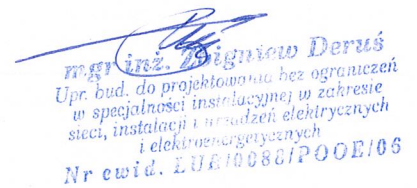 mgr inż. Zbigniew Deruś
Upr. bud. do projektowania bez ograniczeń
w specjalności instalacyjnej w zakresie
sieci, instalacji i urządzeń elektrycznych
i elektroenergetycznych
Nr ewid. LUB/0088/POOE/06